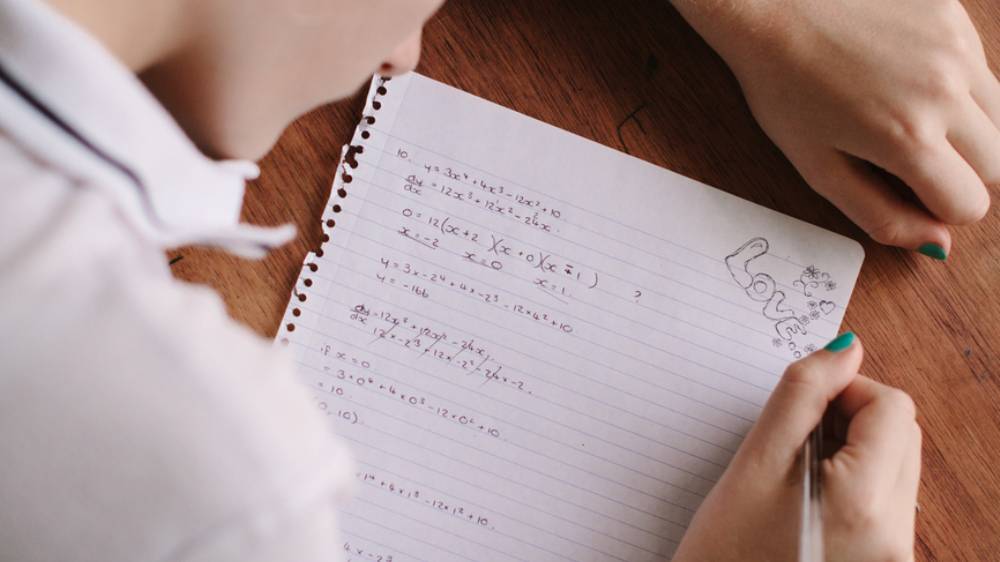 10. y = 3x⁴ + 4x³ - 12x² + 10
dy/dx = 12x³ + 12x² - 24x.
0 = 12(x+2)(x+0)(x-1)
x = -2 x = 0 x = 1. ?
y = 3x-2⁴ + 4x-2³ - 12x4² + 10
y = -166
dy/dx = 12x³ + 12x² - 24x.
12x-2³ + 12x-2² - 24x-2.
if x = 0
= 3x0⁴ + 4x0³ - 12x0² + 10
= 10
0, 10)
1⁴ + 4x1³ - 12x1² + 10.
4x-2³
Love